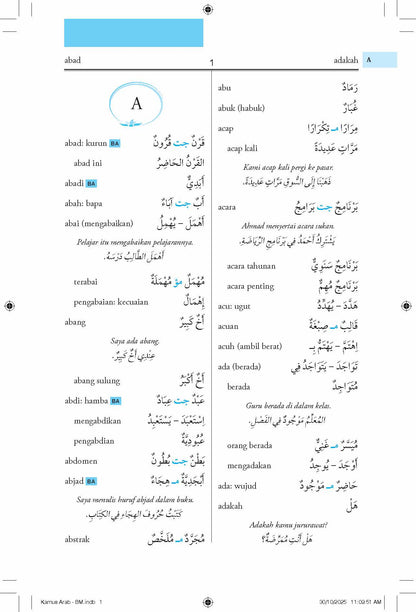 abad 1 adakah A
A
abad: kurun BA قَرْنٌ جت قُرُونٌ
abad ini القَرْنُ الحَاضِرُ
abadi BA أَبَدِيٌّ
abah: bapa أَبٌ جت آبَاءٌ
abai (mengabaikan) أَهْمَلَ – يُهْمِلُ
Pelajar itu mengabaikan pelajarannya.
أَهْمَلَ الطَّالِبُ دَرْسَهُ.
terabai مُهْمَلٌ مؤ مُهْمَلَةٌ
pengabaian: kecuaian إِهْمَالٌ
abang أَخٌ كَبِيرٌ
Saya ada abang.
عِنْدِي أَخٌ كَبِيرٌ.
abang sulung أَخٌ أَكْبَرُ
abdi: hamba BA عَبْدٌ جت عِبَادٌ
mengabdikan اِسْتَعْبَدَ – يَسْتَعْبِدُ
pengabdian عُبُودِيَّةٌ
abdomen بَطْنٌ جت بُطُونٌ
abjad BA أَبْجَدِيَّةٌ مـ هِجَاءٌ
Saya menulis huruf abjad dalam buku.
كَتَبْتُ حُرُوفَ الهِجَاءِ فِي الكِتَابِ.
abstrak مُجَرَّدٌ مـ مُلَخَّصٌ
abu رَمَادٌ
abuk (habuk) غُبَارٌ
acap مِرَارًا مـ تِكْرَارًا
acap kali مَرَّاتٍ عَدِيدَةً
Kami acap kali pergi ke pasar.
ذَهَبْنَا إِلَى السُّوقِ مَرَّاتٍ عَدِيدَةً.
acara بَرْنَامِجٌ جت بَرَامِجُ
Ahmad menyertai acara sukan.
يَشْتَرِكُ أَحْمَدُ فِي بَرْنَامِجِ الرِّيَاضَةِ.
acara tahunan بَرْنَامِجٌ سَنَوِيٌّ
acara penting بَرْنَامِجٌ مُهِمٌّ
acu: ugut هَدَّدَ – يُهَدِّدُ
acuan قَالِبٌ مـ صِبْغَةٌ
acuh (ambil berat) اِهْتَمَّ – يَهْتَمُّ بِـ
ada (berada) تَوَاجَدَ – يَتَوَاجَدُ فِي
berada مُتَوَاجِدٌ
Guru berada di dalam kelas.
المُعَلِّمُ مَوْجُودٌ فِي الفَصْلِ.
orang berada مُيَسَّرٌ مـ غَنِيٌّ
mengadakan أَوْجَدَ – يُوجِدُ
ada: wujud حَاضِرٌ مـ مَوْجُودٌ
adakah هَلْ
Adakah kamu jururawat?
هَلْ أَنْتِ مُمَرِّضَةٌ؟
Kamus Arab - BM.indb 1 30/10/2025 11:09:51 AM